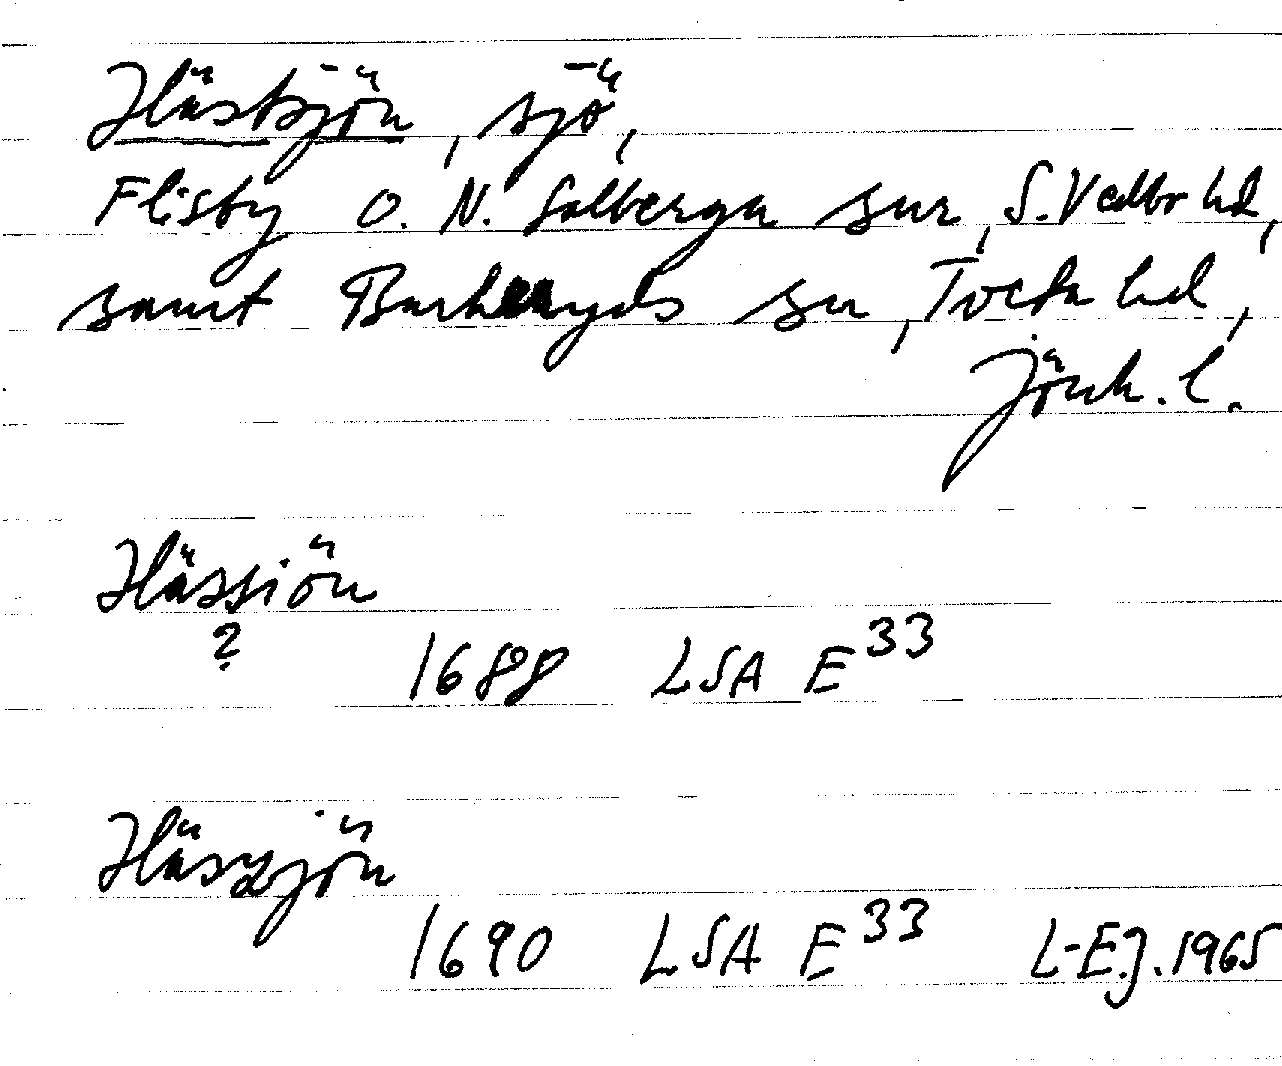 Hästsjön, sjö,
Flisby o. N. Solberga snr, S. Vedbo hd,
samt Barkeryds sn, Tveta hd,
Jönk. l.
Hässiön
?
1688 LSA E 33
Häszjön
1690 LSA E 33 L-E.J. 1965